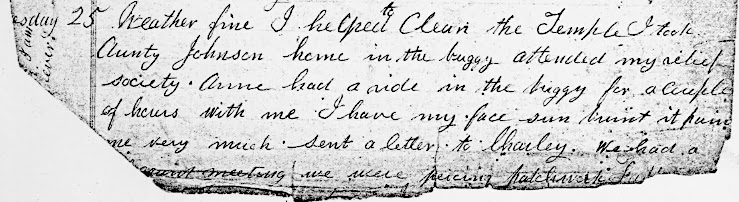 25 Weather fine I helped to Clean the Temple I took
Aunty Johnson home in the buggy attended my relief
society. Anne had a ride in the buggy for a couple
of hours with me I have my face sun burnt it pain
me very much. sent a letter. to Charley. We had a
meeting we were piecing patchwork